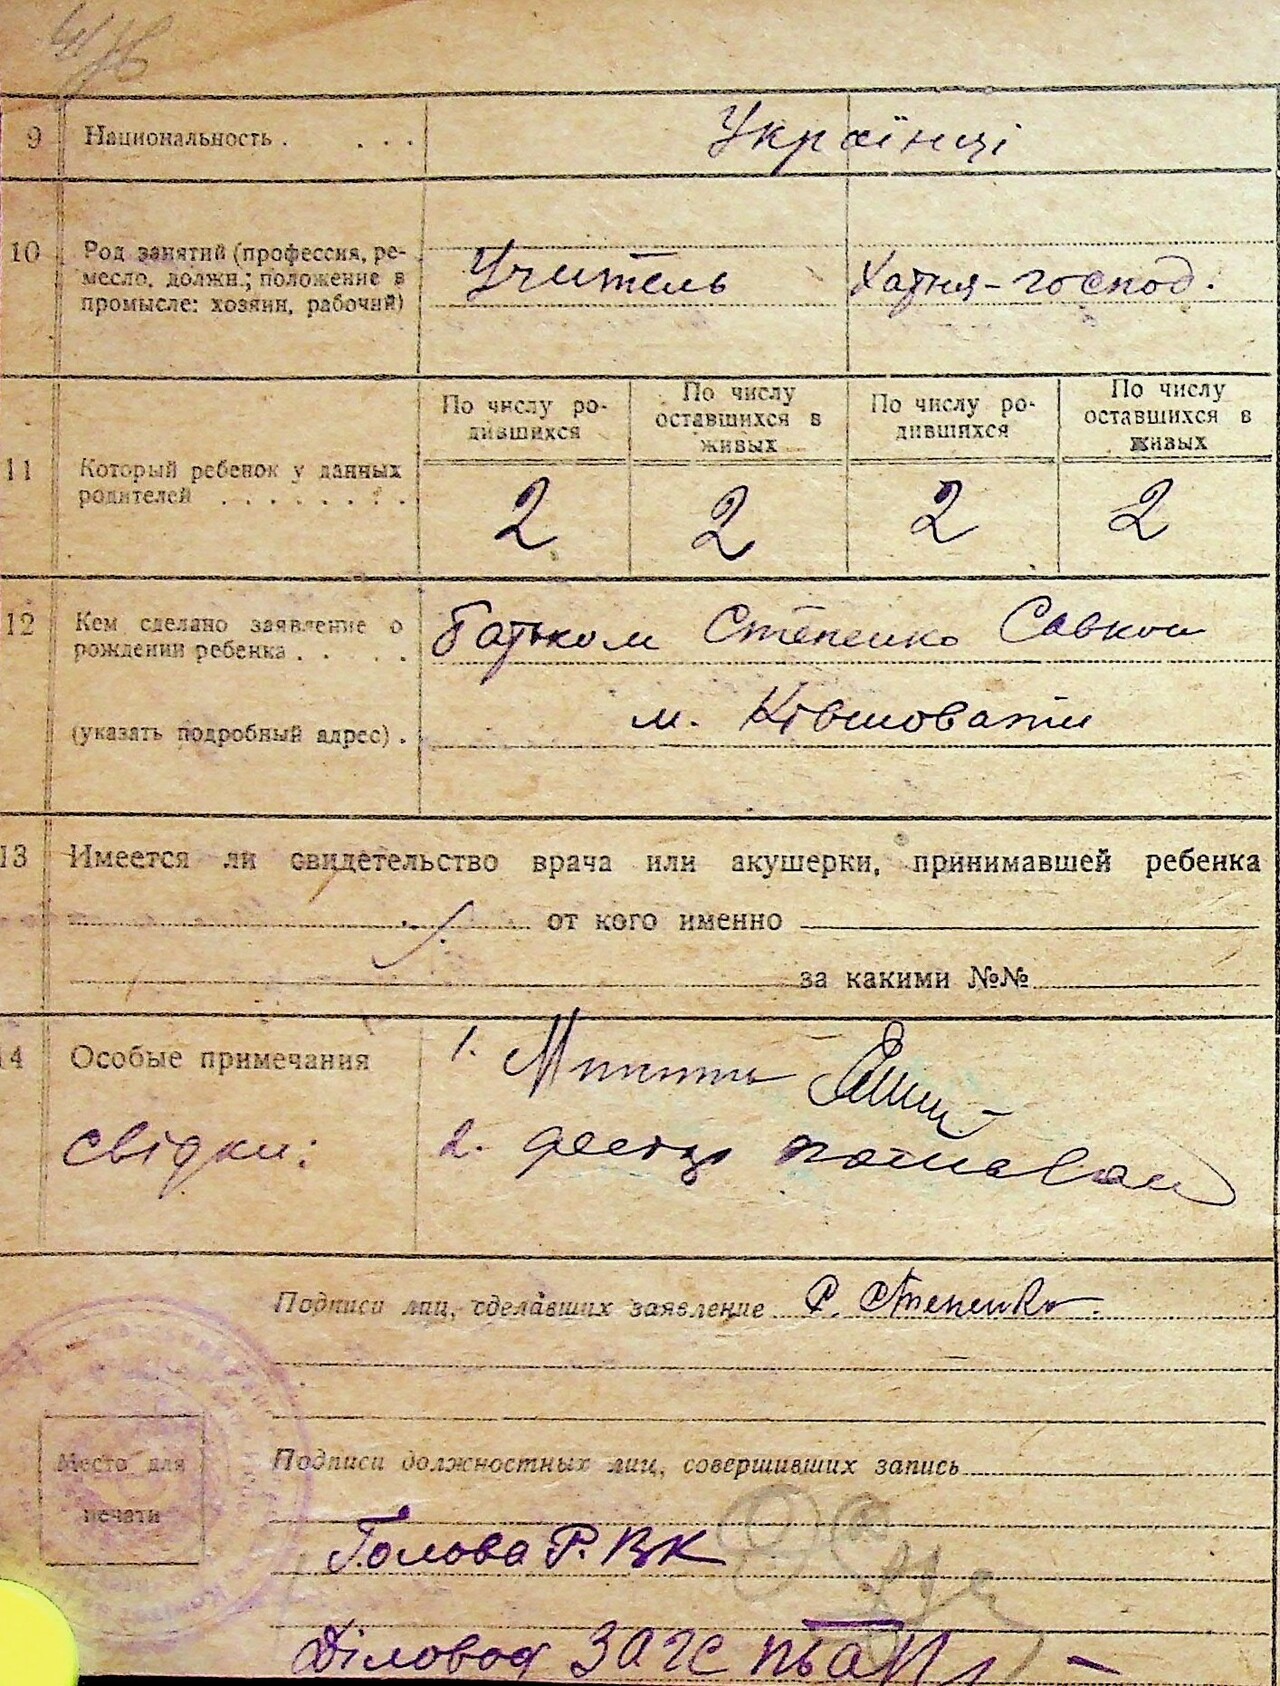 9 Национальность . . . . Українці
10 Род занятий (профессия, ре-
месло, должн.; положение в
промысле: хозяин, рабочий)
Учитель Хатня-господ.
По числу ро-
дившихся
По числу
оставшихся в
живых
По числу ро-
дившихся
По числу
оставшихся в
живых
11 Который ребенок у данных
родителей . . . . . . .
2 2 2 2
12 Кем сделано заявление о
рождении ребенка . . . .
батьком Степенко Савкою
(указать подробный адрес) .
м. Ківшовати
13 Имеется ли свидетельство врача или акушерки, принимавшей ребенка
от кого именно
за какими №№
14 Особые примечания
свідки:
1.
2.
Подписи лиц, сделавших заявление С. Степенко.
Место для
печати
Подписи должностных лиц, совершивших запись
Голова Р.ВК
Діловод ЗАГС